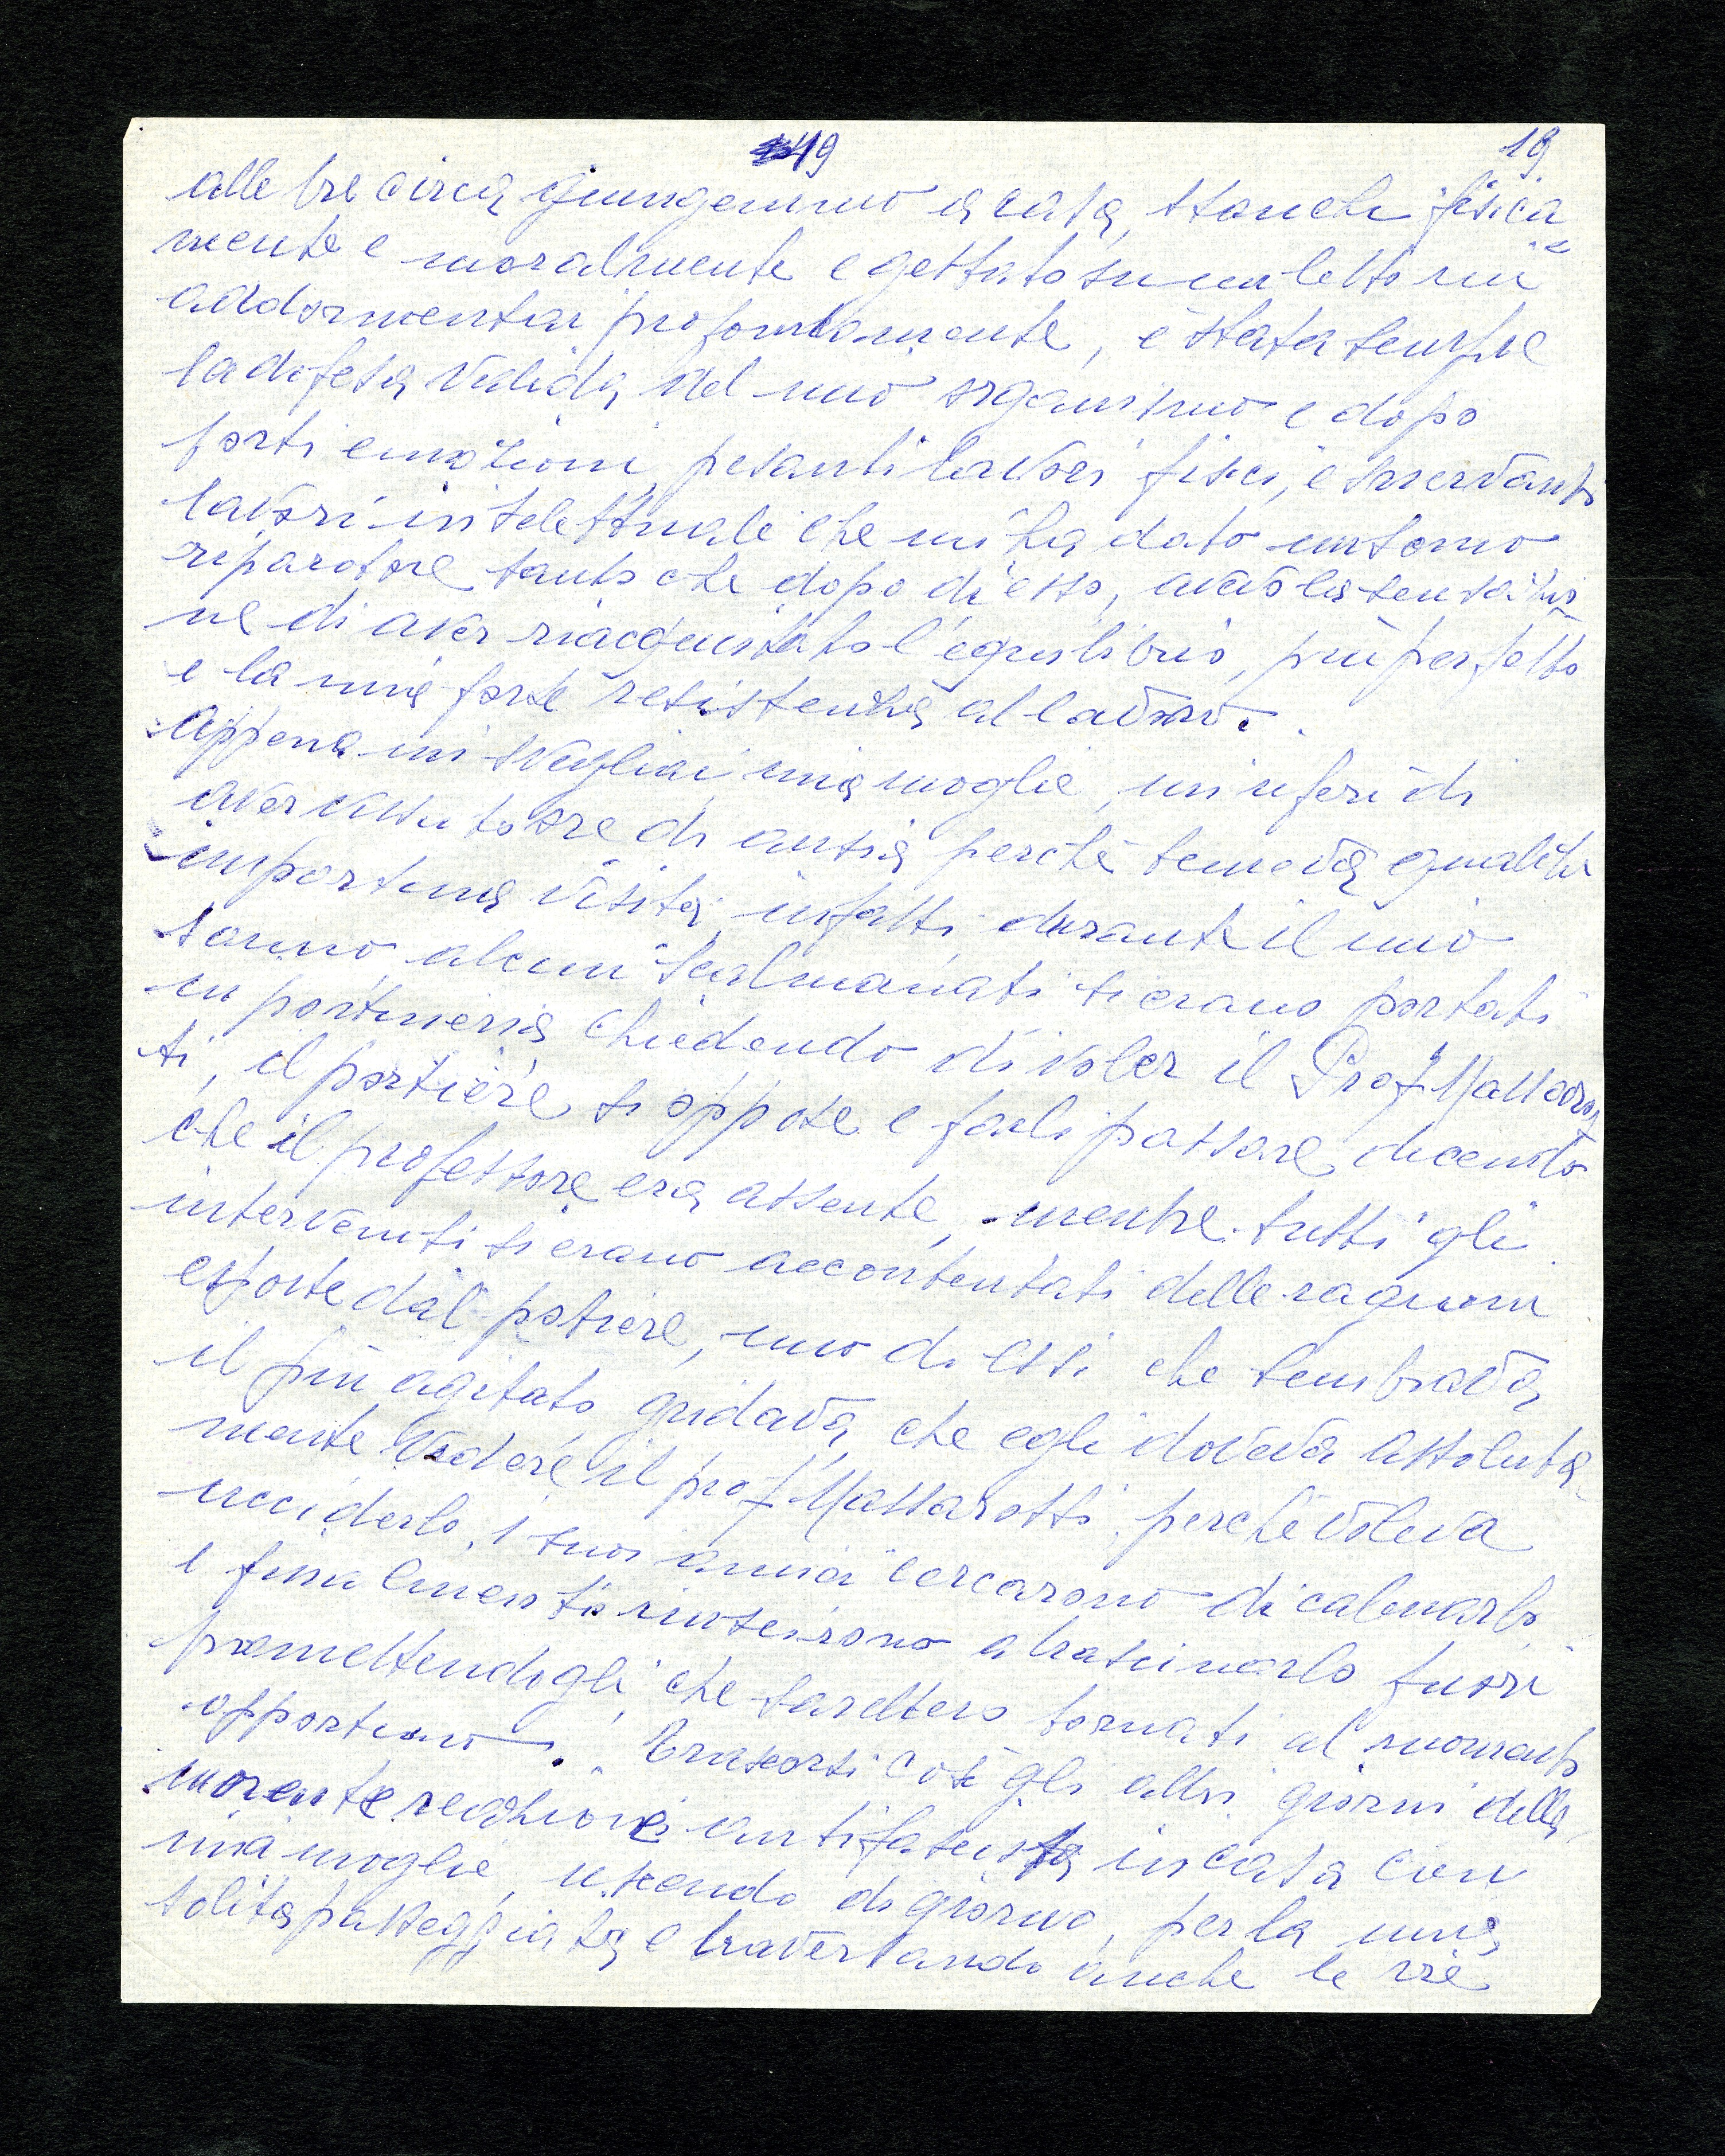 19 19
alle tre circa giungemmo a casa, stanchi fisica
mente e moralmente e gettato su un letto mi
addormentai profondamente, è stata sempre
la difesa valida del mio organismo e dopo
forti emozioni, pesanti lavori fisici, e snervanti
lavori intelettuali che mi ha dato un sonno
riparatore tanto che dopo di esso, avevo la sensazio
ne di aver riacquistato l'equilibrio, più perfetto
e la mia forte resistenza al lavoro.
Appena mi svegliai mia moglie, mi riferì di
aver vissuto ore di ansia perchè temeva qualche
importuna visita, infatti, durante il mio
sonno alcuni scalmanati si erano portati
in portineria chiedendo di voler il Prof. Massarot
ti, il portiere si oppose e farli passare dicendo
che il professore era assente, mentre tutti gli
intervenuti si erano accontentati delle ragioni
esposte dal potiere, uno di essi che sembrava
il più agitato, gridava che egli doveva assoluta
mente vedere il prof. Massarotti, perchè voleva
ucciderlo, i suoi amici cercarono di calmarlo
e finalmente riuscirono a trascinarlo fuori
promettendogli, che sarebbero tornati al momento
opportuno. Trascorsi così gli altri giorni della
morente reazione antifascista in casa con
mia moglie, uscendo di giorno, per la mia
solita passeggiata e traversando anche le vie